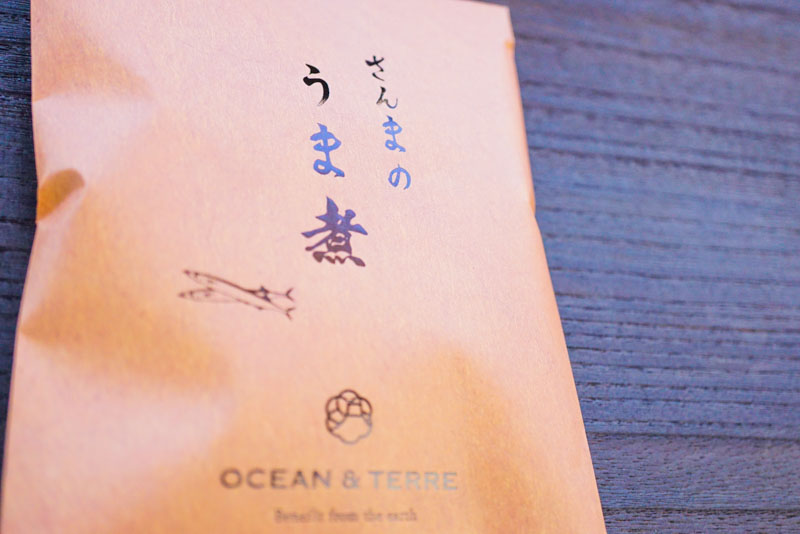 さんまの
うま煮
OCEAN & TERRE
Benefit from the earth